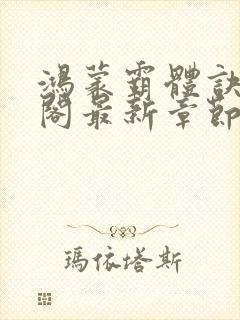 鴻蒙霸體訣
閣最新章節
瑪依塔斯